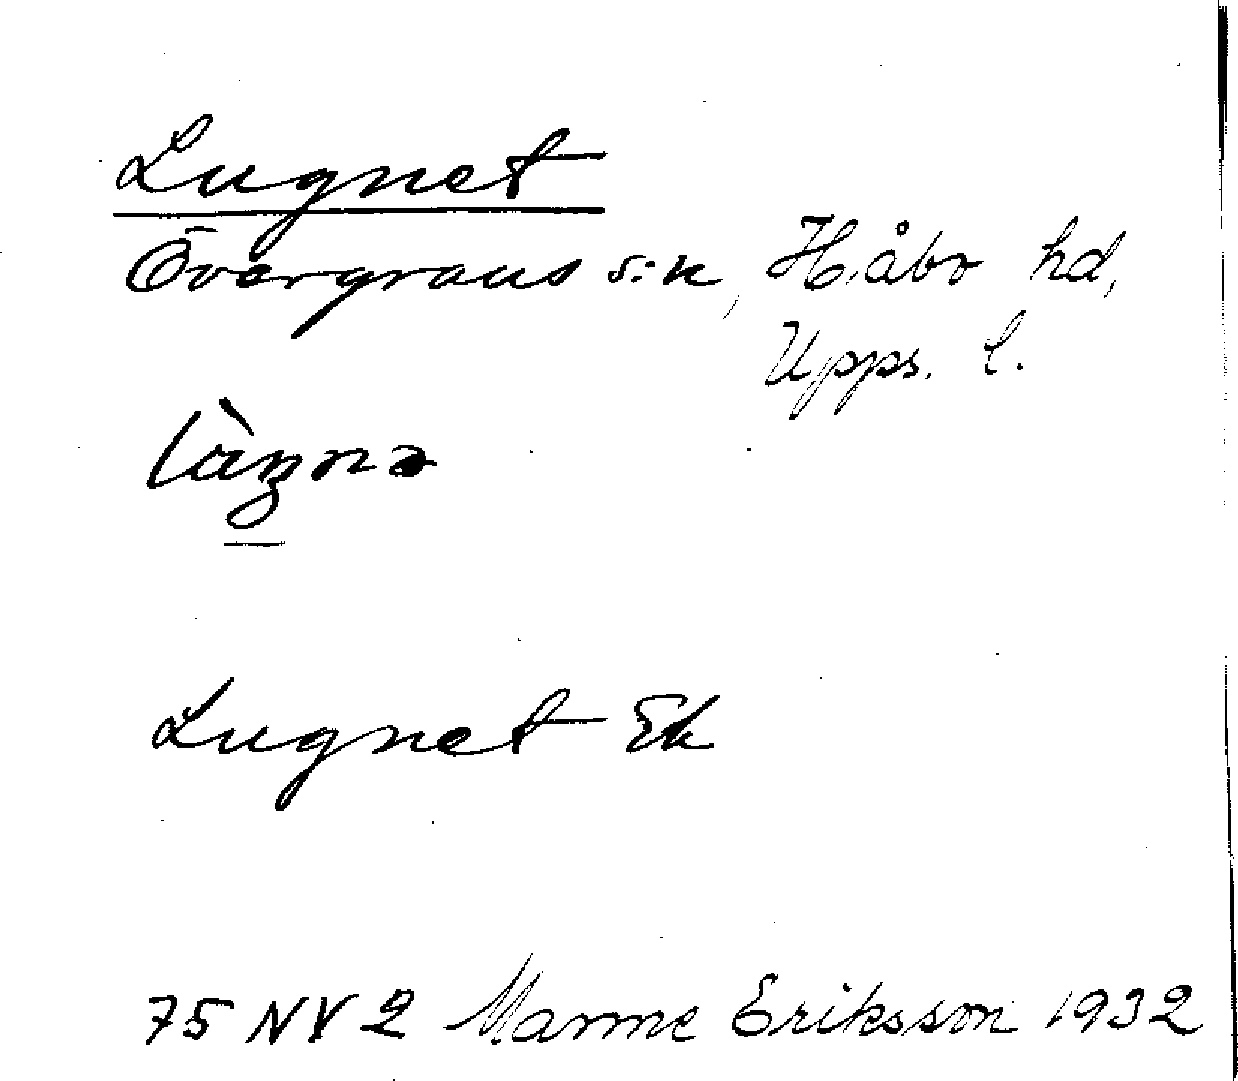 Lugnet
Övergrans s:n, Håbo hd,
Upps. l.
Lugnet Ek
75 NV 2 Manne Eriksson 1932